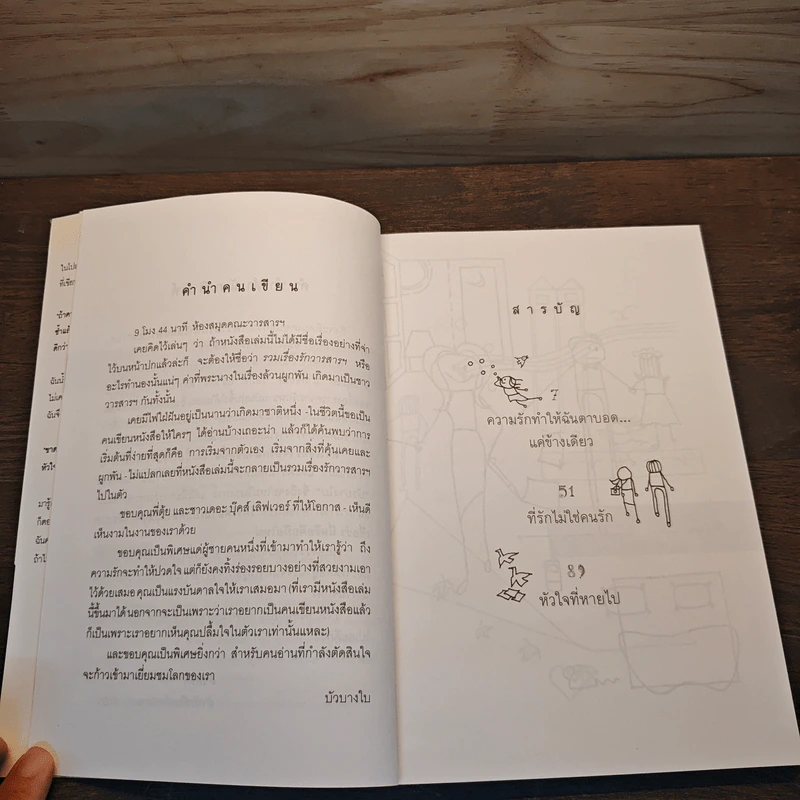 ในโปส
ที่เขียน
ฉันนั้
ไม่เค
ฉันจึ
หัวใจ
มารู้
ก็ตอ
ฉันค
ถ้าไ
คำนำคนเขียน
9 โมง 44 นาที ห้องสมุดคณะวารสารฯ
เคยคิดไว้เล่นๆ ว่า ถ้าหนังสือเล่มนี้ไม่ได้มีชื่อเรื่องอย่างที่จ่า
ไว้บนหน้าปกแล้วล่ะก็ จะต้องให้ชื่อว่า รวมเรื่องรักวารสารฯ หรือ
อะไรทำนองนั้นแน่ๆ ค่าที่พระนางในเรื่องล้วนผูกพัน เกิดมาเป็นชาว
วารสารฯ กันทั้งนั้น
เคยมีไฟใฝ่ฝันอยู่เป็นนานว่าเกิดมาชาติหนึ่ง -ในชีวิตนี้ขอเป็น
คนเขียนหนังสือให้ใครๆ ได้อ่านบ้างเถอะน่า แล้วก็ได้ค้นพบว่าการ
เริ่มต้นที่ง่ายที่สุดก็คือ การเริ่มจากตัวเอง เริ่มจากสิ่งที่คุ้นเคยและ
ผูกพัน - ไม่แปลกเลยที่หนังสือเล่มนี้จะกลายเป็นรวมเรื่องรักวารสารฯ
ไปในตัว
ขอบคุณพี่ตุ้ย และชาวเดอะ บุ๊คส์ เลิฟเวอร์ ที่ให้โอกาส - เห็นดี
เห็นงามในงานของเราด้วย
ขอบคุณเป็นพิเศษแด่ผู้ชายคนหนึ่งที่เข้ามาทำให้เรารู้ว่า ถึง
ความรักจะทำให้ปวดใจ แต่ก็ยังคงทิ้งร่องรอยบางอย่างที่สวยงามเอา
ไว้ด้วยเสมอ คุณเป็นแรงบันดาลใจให้เราเสมอมา (ที่เรามีหนังสือเล่ม
นี้ขึ้นมาได้ นอกจากจะเป็นเพราะว่าเราอยากเป็นคนเขียนหนังสือแล้ว
ก็เป็นเพราะเราอยากเห็นคุณปลื้มใจในตัวเราเท่านั้นแหละ)
และขอบคุณเป็นพิเศษยิ่งกว่า สำหรับคนอ่านที่กำลังตัดสินใจ
จะก้าวเข้ามาเยี่ยมชมโลกของเรา
บัวบางใบ
สารบัญ
7
ความรักทำให้ฉันตาบอด...
แค่ข้างเดียว
51
ที่รักไม่ใช่คนรัก
89
หัวใจที่หายไป